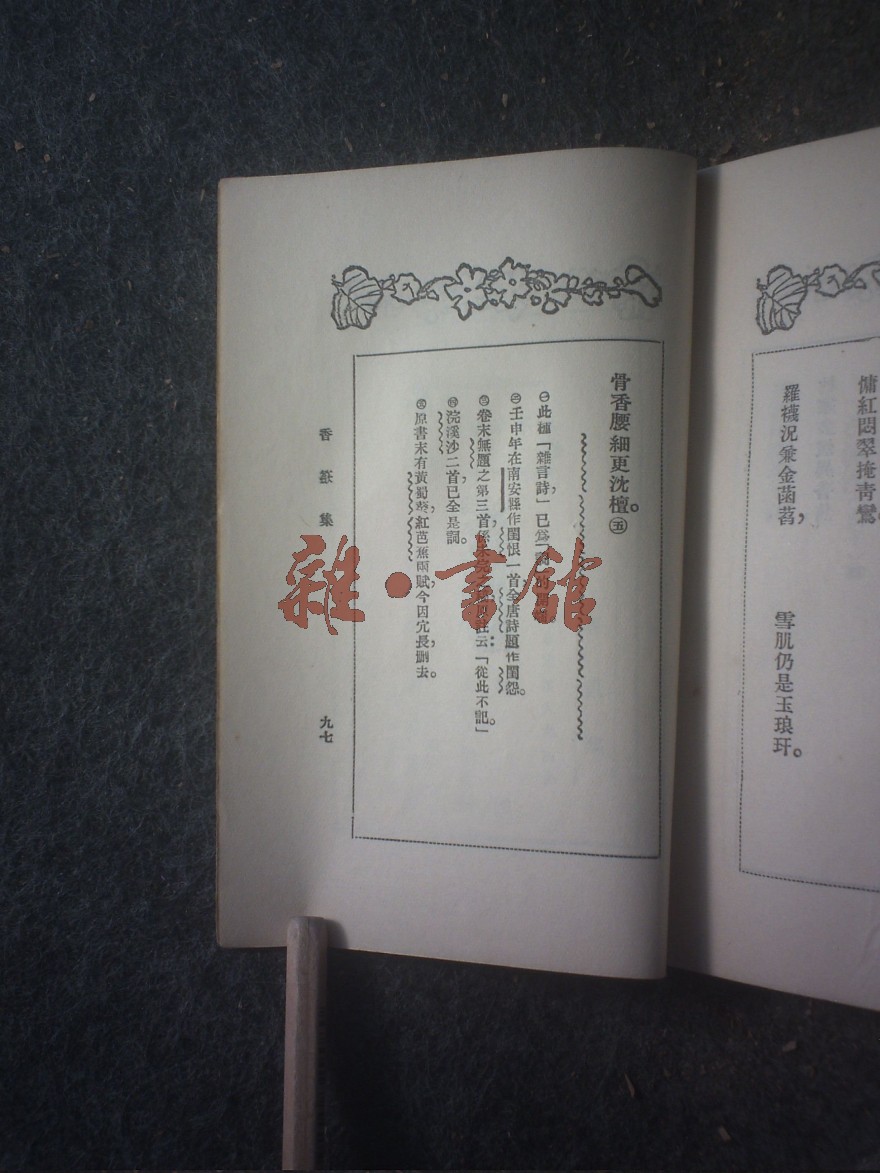 慵紅悶翠掩青鸞
羅襪況兼金菡萏，
雪肌仍是玉琅玕。
骨香腰細更沈檀。㊄
㊀此種「雜言詩」，已爲「詞」的
㊁壬申年在南安縣作閨恨一首全唐詩題作閨怨。
㊂卷末無題之第三首，係未完之 云：「從此不記。」
㊃浣溪沙二首，已全是詞。
㊄原書末有黃蜀葵，紅芭蕉兩賦，今因冗長，刪去。
香奩集
九七
雜·書館